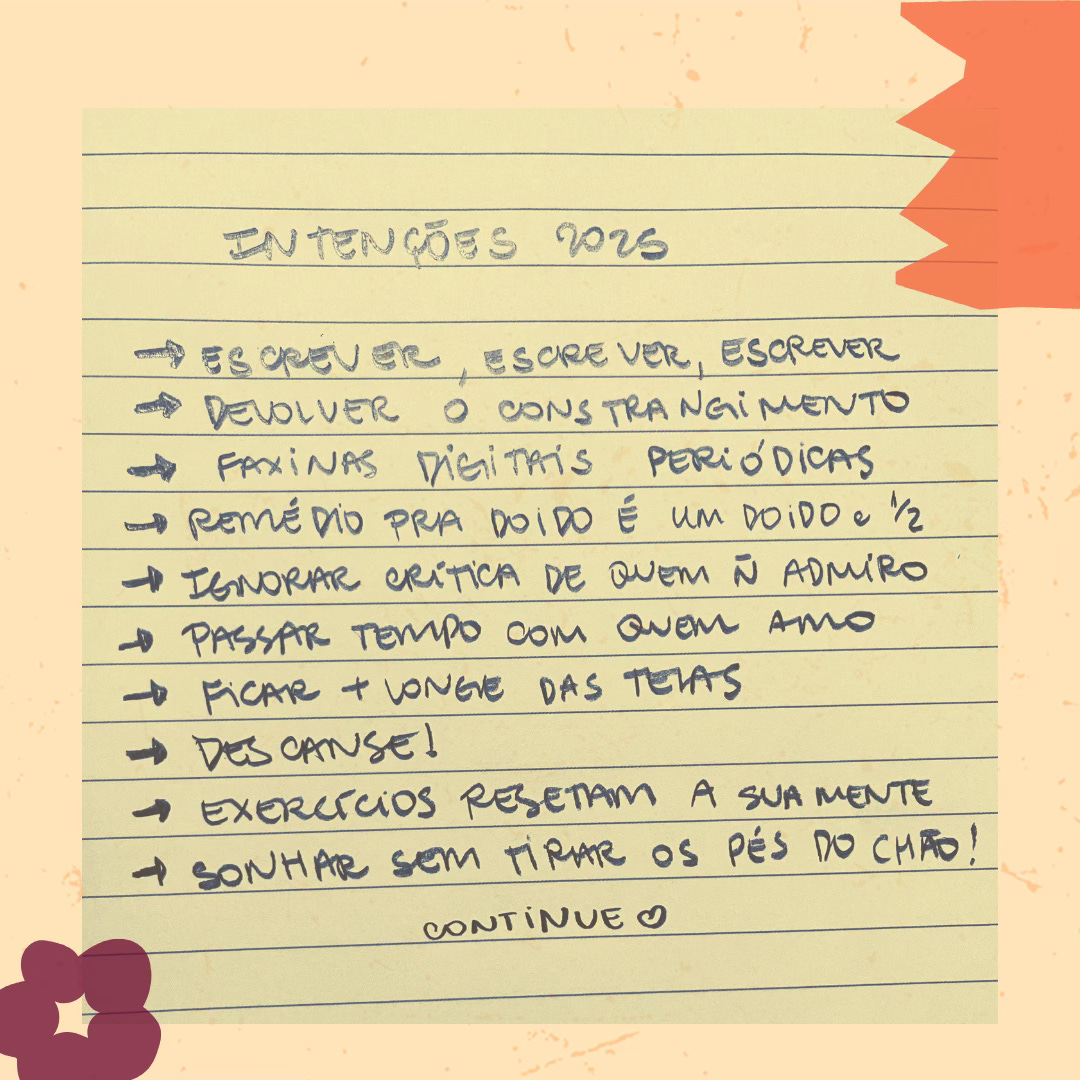 INTENÇÕES 2025
→ ESCREVER, ESCREVER, ESCREVER
→ DEVOLVER O CONSTRANGIMENTO
→ FAXINAS DIGITAIS PERIÓDICAS
→ REMÉDIO PRA DOIDO É UM DOIDO e 1/2
→ IGNORAR CRÍTICA DE QUEM Ñ ADMIRO
→ PASSAR TEMPO COM QUEM AMO
→ FICAR + LONGE DAS TELAS
→ DESCANSE!
→ EXERCÍCIOS RESETAM A SUA MENTE
→ SONHAR SEM TIRAR OS PÉS DO CHÃO!
CONTINUE ♡